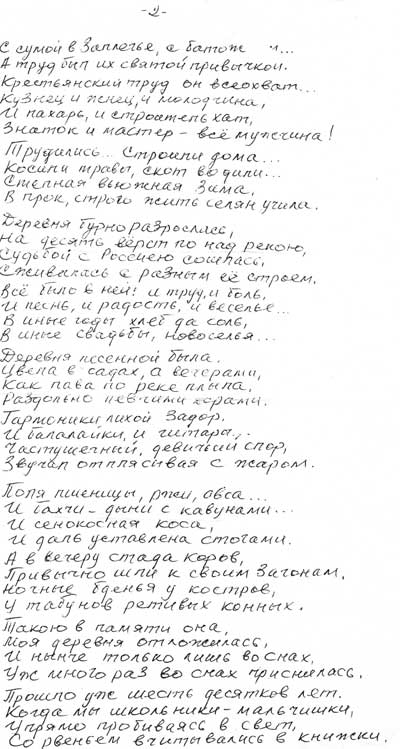 -2-
С сумой в Заплечье, с батож
А труд был их святой привычкой.
Крестьянский труд он всеохват...
Кузнец и жнец, и молодчина,
И пахарь, и строитель хат,
Знаток и мастер - всё мужчина!
Трудились... Строили дома...
Косили травы, скот водили...
Степная вьюжная Зима,
В прок, строго жить селян учила.
Деревня бурно разрослась,
На десять вёрст по над рекою,
Судьбой с Россиею сошлась,
Сживылась с разным её строем.
Всё было в ней! и труд, и боль,
И песнь, и радость, и веселье...
В иные годы хлеб да соль,
В иные свадьбы, новоселья...
Деревня песенной была.
Цвела в садах, а вечерами,
Как пава по реке плыла,
Раздольно певчими хорами.
Гармоники лихой Задор.
И балалайки, и гитары,.
Частушечный, девичий спор,
Звучал отплясывая с жаром.
Поля пшеницы, ржи, овса...
И бахчи - дыни с кавунами...
И сенокосная коса,
И даль уставлена стогами.
А в вечеру стада коров,
Привычно шли к своим Загонам,
Ночные бденья у костров,
У табунов ретивых конных.
Такою в памяти она,
Моя деревня отложилась,
И нынче только лишь во снах,
Уж много раз во снах приснилась.
Прошло уж шесть десятков лет.
Когда мы школьники-мальчишки,
Упрямо пробиваясь в свет,
Со рвеньем вчитывались в книжки.